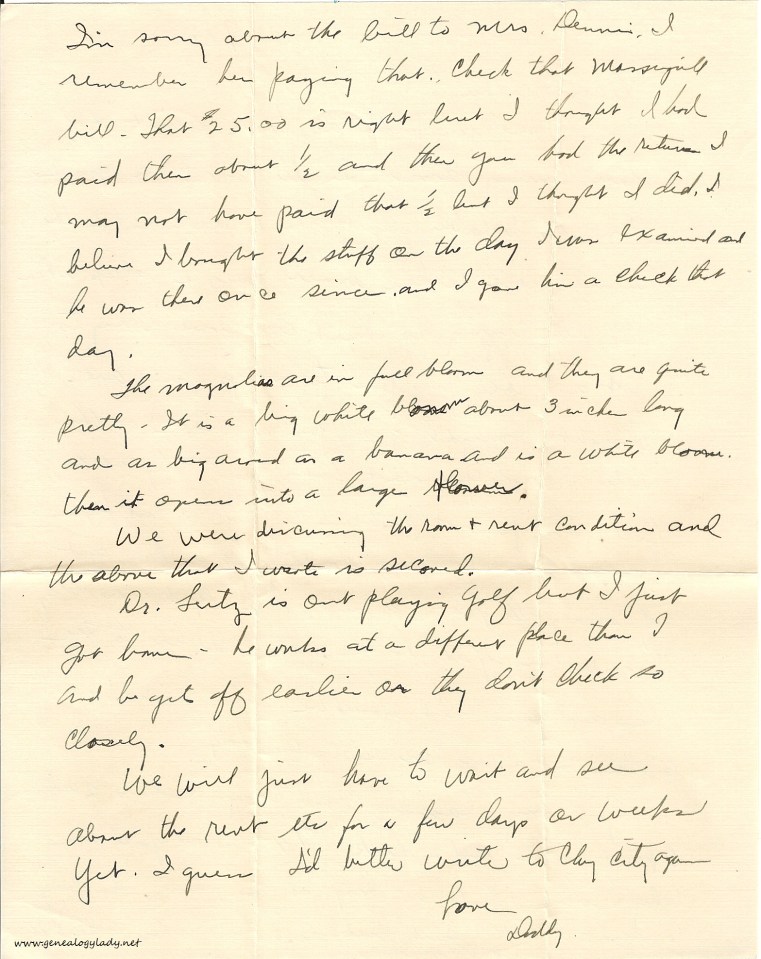 I'm sorry about the bill to Mrs. Dennis. I
remember her paying that. Check that Massigill
bill - That $25.00 is right but I thought I had
paid them about 1/2 and then you had the return I
may not have paid that 1/2 but I thought I did. I
believe I bought the stuff on the day I was examined and
he was there once since. and I gave him a check that
day.
The magnolias are in full bloom and they are quite
pretty - It is a big white blossom about 3 inches long
and as big around as a banana and is a white bloom.
then it opens into a large flower.
We were discussing the room + rent condition and
the above that I wrote is second.
Dr. Lutz is out playing golf but I just
got home - he works at a different place than I
and he gets off earlier or they don't check so
closely.
We will just have to wait and see
about the rent etc for a few days or weeks
yet. I guess I'd better write to Clay City again
Love
Daddy.
www.genealogylady.net